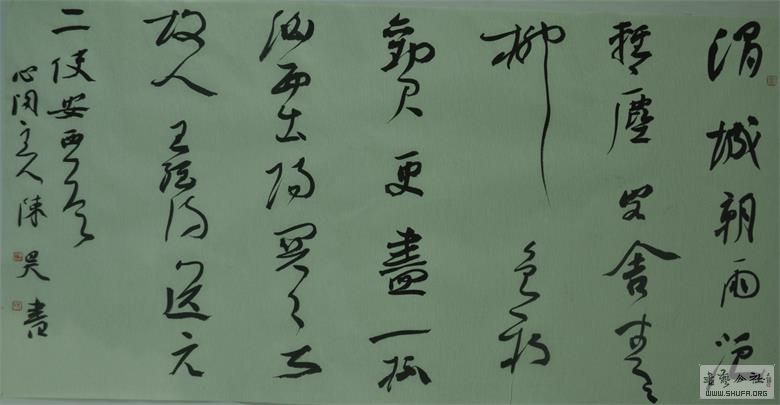 渭城朝雨浥
輕塵客舍青々
柳色新
勸君更盡一杯
酒西出陽關無
故人王維詩送元
二使安西
心閑主人陳昊書
書藝公社
WWW.SHUFA.ORG